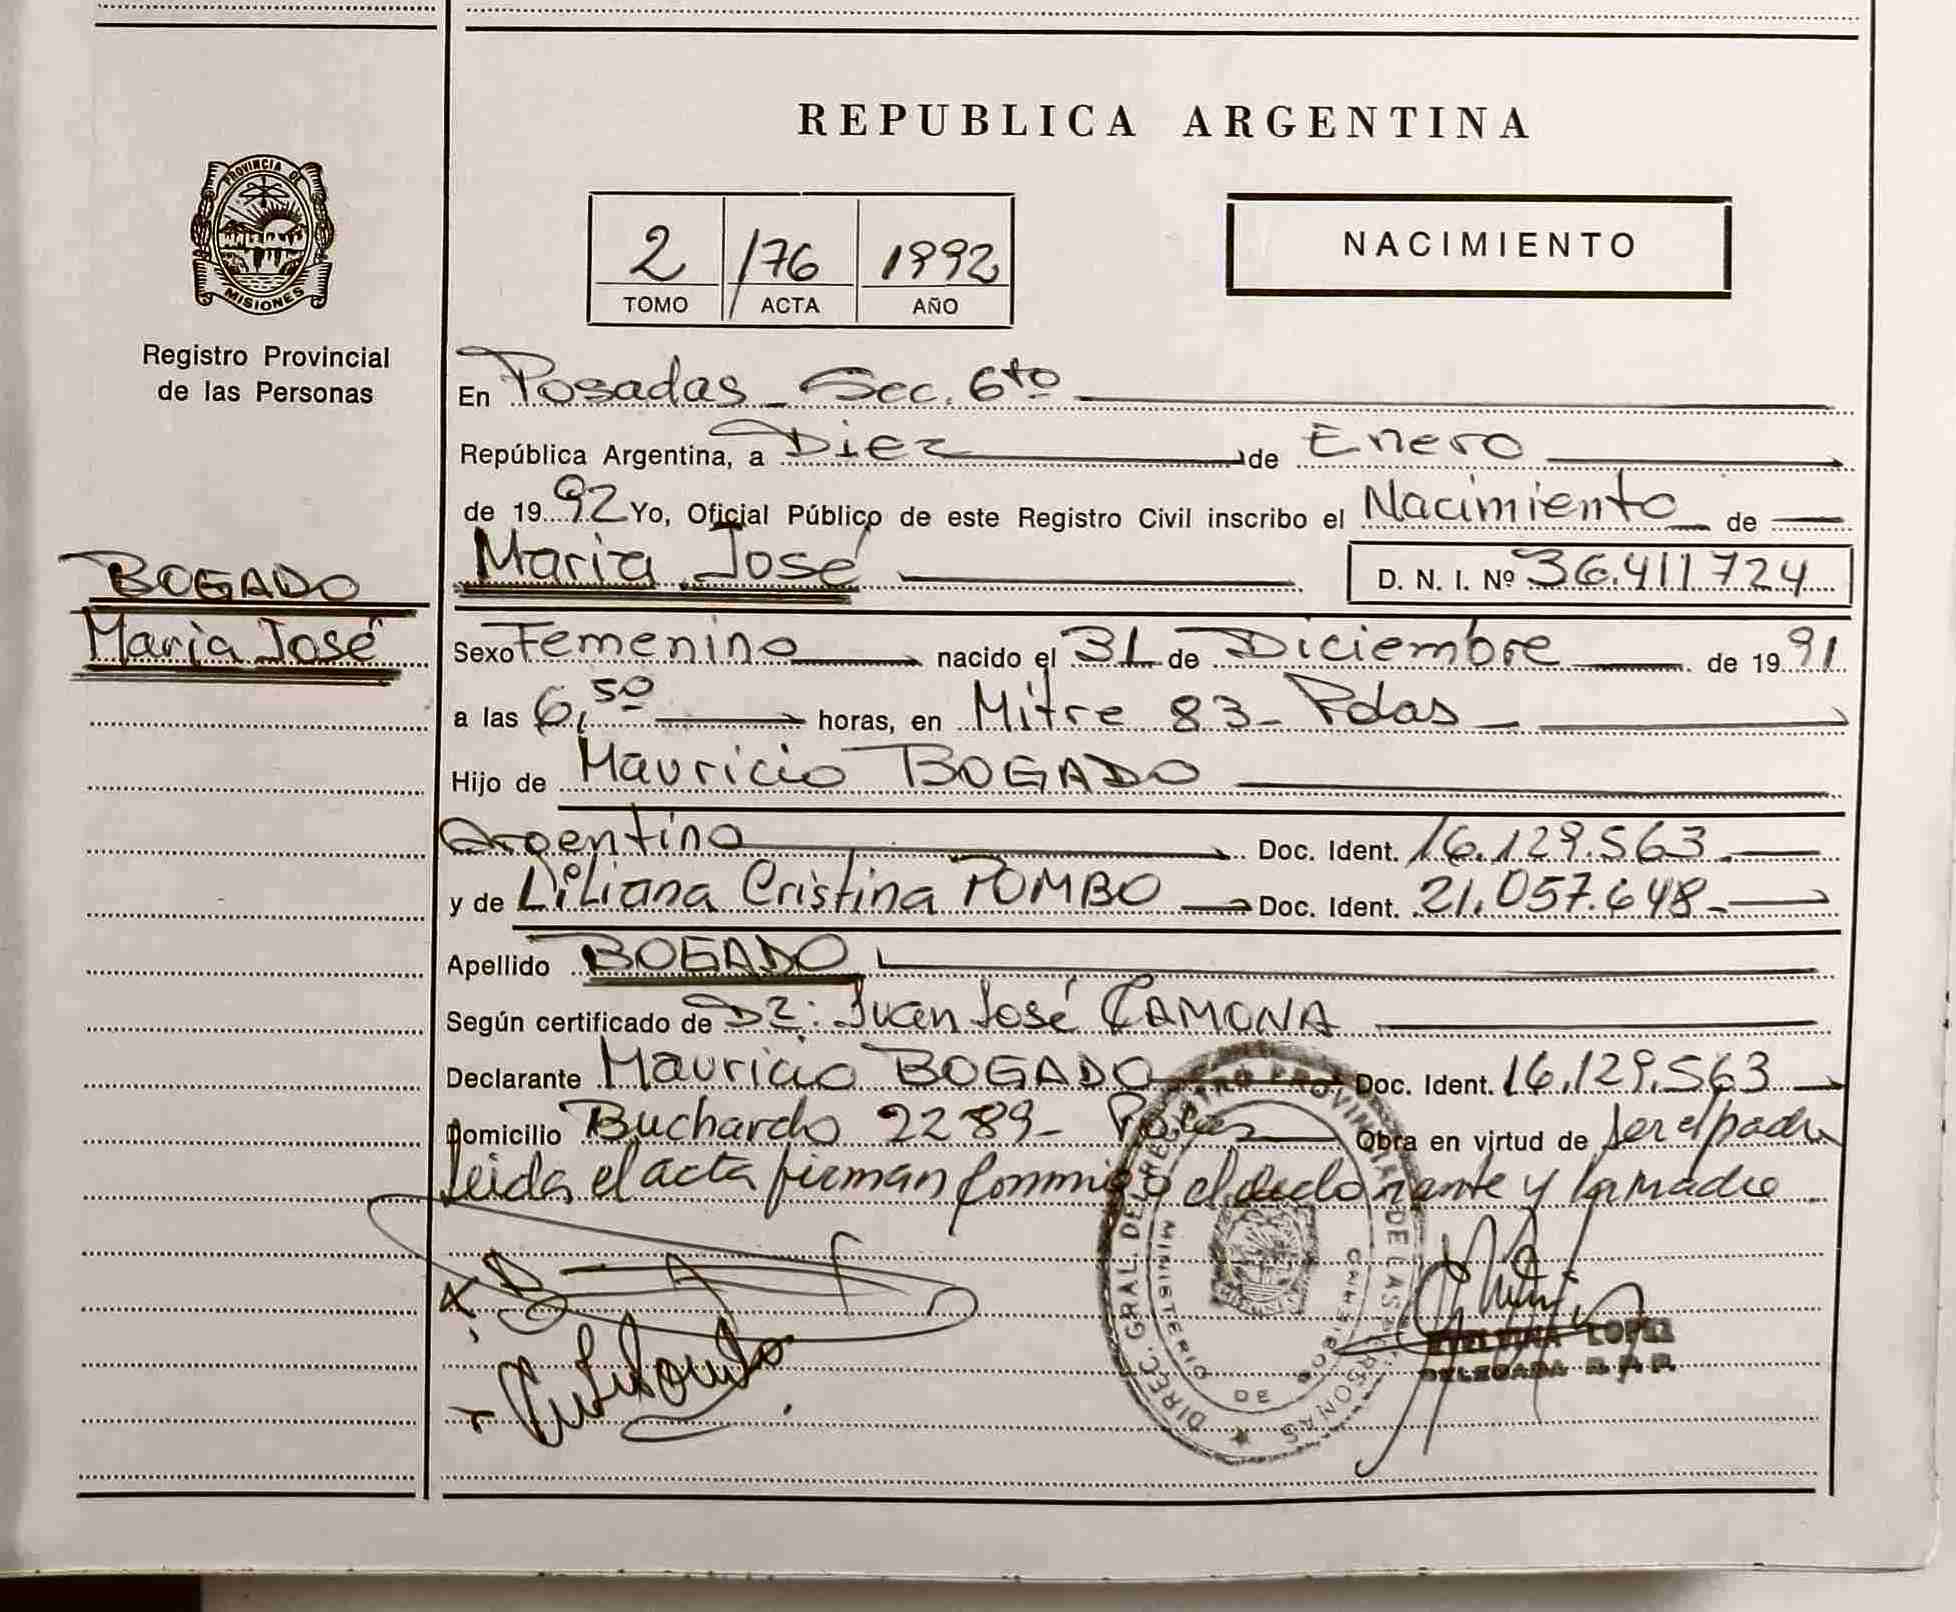 REPUBLICA ARGENTINA
PROVINCIA DE
MISIONES
Registro Provincial
de las Personas
2 176 1992
TOMO ACTA AÑO
NACIMIENTO
En Posadas - Sec. 6to
República Argentina, a Diez de Enero
de 1992 Yo, Oficial Público de este Registro Civil inscribo el Nacimiento de
BOGADO
María José
María José D. N. I. Nº 36.411724
Sexo Femenino nacido el 31 de Diciembre de 1991
a las 6,50 horas, en Mitre 83- Pdas -
Hijo de Mauricio BOGADO
Argentino Doc. Ident. 16.129.563.
y de Liliana Cristina POMBO Doc. Ident. 21.057.648-
Apellido BOGADO
Según certificado de Dr: Juan José CAMONA
Declarante Mauricio BOGADO Doc. Ident. 16.129.563
Domicilio Buchardo 2289- Obra en virtud de ser el padre
Leida el acta firman conmigo el declarante y la madre
DIREC. GRAL. DEL REGISTRO PROVINCIAL DE LAS PERSONAS
MINISTERIO DE GOBIERNO
LOPEZ
DELEGADA R.P.P.